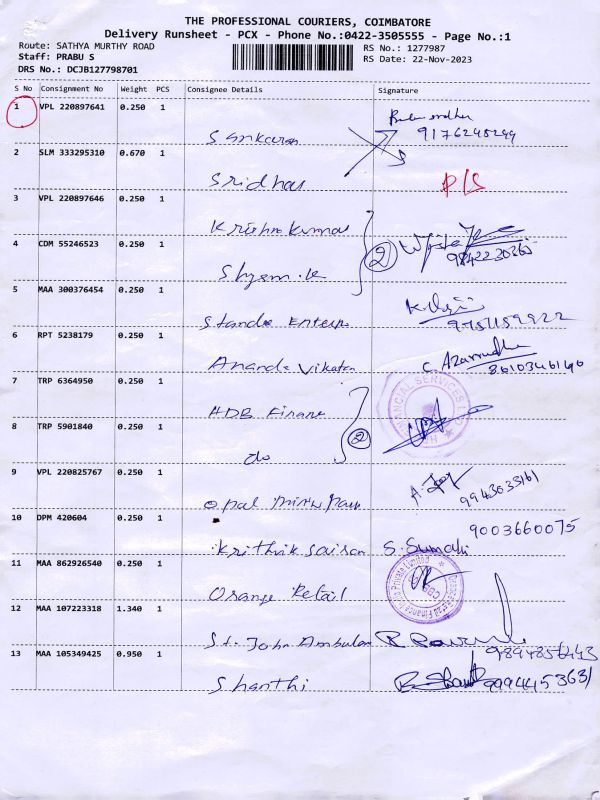 THE PROFESSIONAL COURIERS, COIMBATORE
Delivery Runsheet - PCX - Phone No.:0422-3505555 - Page No.:1
Route: SATHYA MURTHY ROAD
RS No.: 1277987
Staff: PRABU S
RS Date: 22-Nov-2023
DRS No.: DCJB127798701
S No Consignment No Weight PCS Consignee Details Signature
1 VPL 220897641 0.250 1
9176245299
S Sankaran
2 SLM 333295310 0.670 1
Sridhar P/S
3 VPL 220897646 0.250 1
Krishna Kumar
4 CDM 55246523 0.250 1 2 9842230365
Shyam.k
5 MAA 300376454 0.250 1
9751159922
6 RPT 5238179 0.250 1
Ananda Vikatan C. 8610346146
7 TRP 6364950 0.250 1
HDB Finance
8 TRP 5901840 0.250 1 2
do
9 VPL 220825767 0.250 1
Opal 9943033161
10 DPM 420604 0.250 1 9003660075
Krithik Sairam S. Sumathi
11 MAA 862926540 0.250 1
Orange Retail
12 MAA 107223318 1.340 1
St. John Ambulan R 9894856443
13 MAA 105349425 0.950 1
Shanthi 9994453631